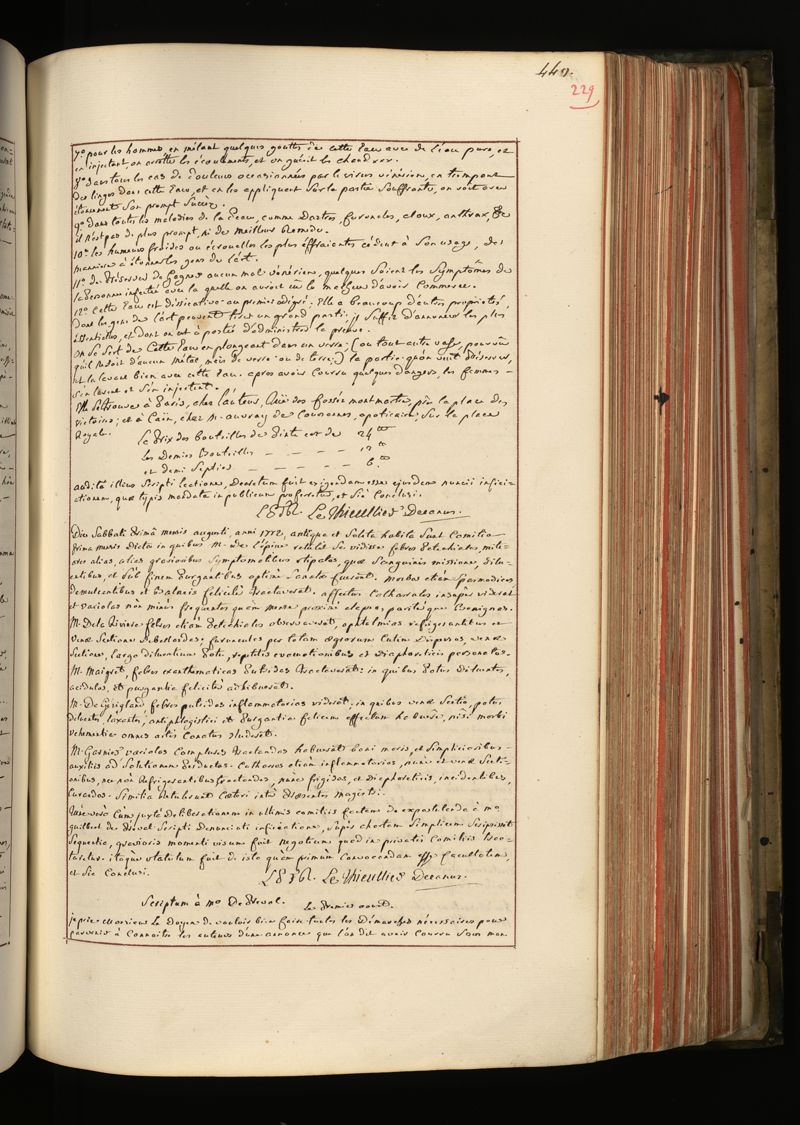 449.
229
7.° pour les hommes, en mêlant quelques gouttes de cette Eau avec de l'eau pure, et
en injectant, on arrête les écoulements, et on guérit les chaud xxx.
8.° dans tous les cas de douleurs occasionnées par le virus vénérien, en trempant
des linges dans cette Eau, et en les appliquant sur la partie souffrante, on voit avec
étonnement son prompt succès.
9.° dans toutes les maladies de la peau, comme Dartres, furoncles, cloux, anthrax, &c
il n'est pas de plus prompt, ni de meilleur Remede.
10.° les humeurs froides ou écrouelles les plus effraiantes cédent à son usage, de
maniere à étonner les gens de l'art.
11.° de préserver de gagner aucun mal vénérien, quelques soient les symptômes de
la personne infectée avec la quelle on auroit eû le malheur d'avoir commerce.
12.° Cette Eau est dissicative au premier dégré: Elle a beaucoup d'autres propriétés
dont les gens de l'art peuvent tirer un grand parti; il suffit d'annoncer les plus
essentielles, et dont on est à portée d'administrer la preuve.
on se sert de Cette Eau en plongeant dans un verre; (ou tout autre vase, pourvû
qu'il ne soit d'aucun métal, mais de verre ou de terre;) la partie qu'on veut préserver,
et la lavant bien avec cette Eau, après avoir couru quelques dangers, les femmes
s'en lavent et s'en injectent.
Elle se trouve à Paris, chez l'auteur, Ruë des fossés montmartre, près la place des
victoires; et à Caën, chez M. auvray de Coursannes, apoticaire, sur la place
Royale.
Le Prix des bouteilles de Pinte est de 24 tt
Les Demies bouteilles - - - - 12 tt
et demi septier - - - - 6. tt
auditâ illius scripti lectione, Decretum fuit exigendam esse ejusdem nuncii inficia-
ationem, quæ typis mandata in publicum proferretur, et sic conclusi.
L. P. f. R. Le Thieullier Decanus.
Die Sabbati Primâ mensis augusti, anni 1772, antiqua et solita habita sunt Comitia
prima mensis dicta in quibus M. De l'épine retulit se vidisse febres petechiales, milia-
res alias, alias gravioribus symptomatibus stipatas, quæ sanguinis missione, dilu-
entibus, et sub finem purgantibus optimè sanatæ fuerunt. morbos etiam spasmodicos
demulcentibus et balneis feliciter tractaverat. affectus catharrales insuper viderat
et variolas non minùs frequentes quàm mense proximè elapso, pariterque benignas.
M. De la Riviere febres etiam petechiales observaverat, ophtalmias refrigerantibus et
venæ sectione debellandas; furunculos per totam ægrorum cutim dispersos, venæ
sectione, largo diluentium potu, repetitis evacuationibus et diaphoreticis personatos.
M. Maigret, febres exanthematicas putridas tractaverat: in quibus potus diluentes,
acidulos, et purgantia feliciter adhibuerat.
M. De Gevigland febres putridas inflammatorias viderat; in quibus venæ sectio, potus
diluentes, laxantes, antiphlogistici et purgantia felicem effectum habuêre, nisi morbi
vehementia omnes artis conatus eluderet.
M. Garnier variolas complures tractandas habuerat boni moris, et simplicioribus
auxiliis ad salutarem perductas. Catharros etiam inflammatorios, nunc et venæ secti-
onibus, nec non refrigerantibus tractandos, nunc frigidos, et diaphoreticis, incidentibus,
curandos. Similia retulerunt cæteri inter præsentes magistri.
Quia verò cum juxtà deliberationem in ultimis comitiis factam de expostulanda à M.°
guilbert de Préval scripti denunciati infitiatione, super chartam simplicem scripserit
sequentia, gravioris momenti visum fuit negotium quod in privatis Comitiis trac-
taretur. itaque statutum fuit de isto quàm primùm convocandam esse facultatem,
et sic conclusi. L. P. f. R. Le Thieullier Decanus.
Scriptum à M.° De Préval. Le premier aoust.
je prie Monsieur le Doyen de vouloir bien faire toutes les démarches nécessaires pour
parvenir à connoitre les auteurs d'une annonce que l'on dit avoir couru sous mon